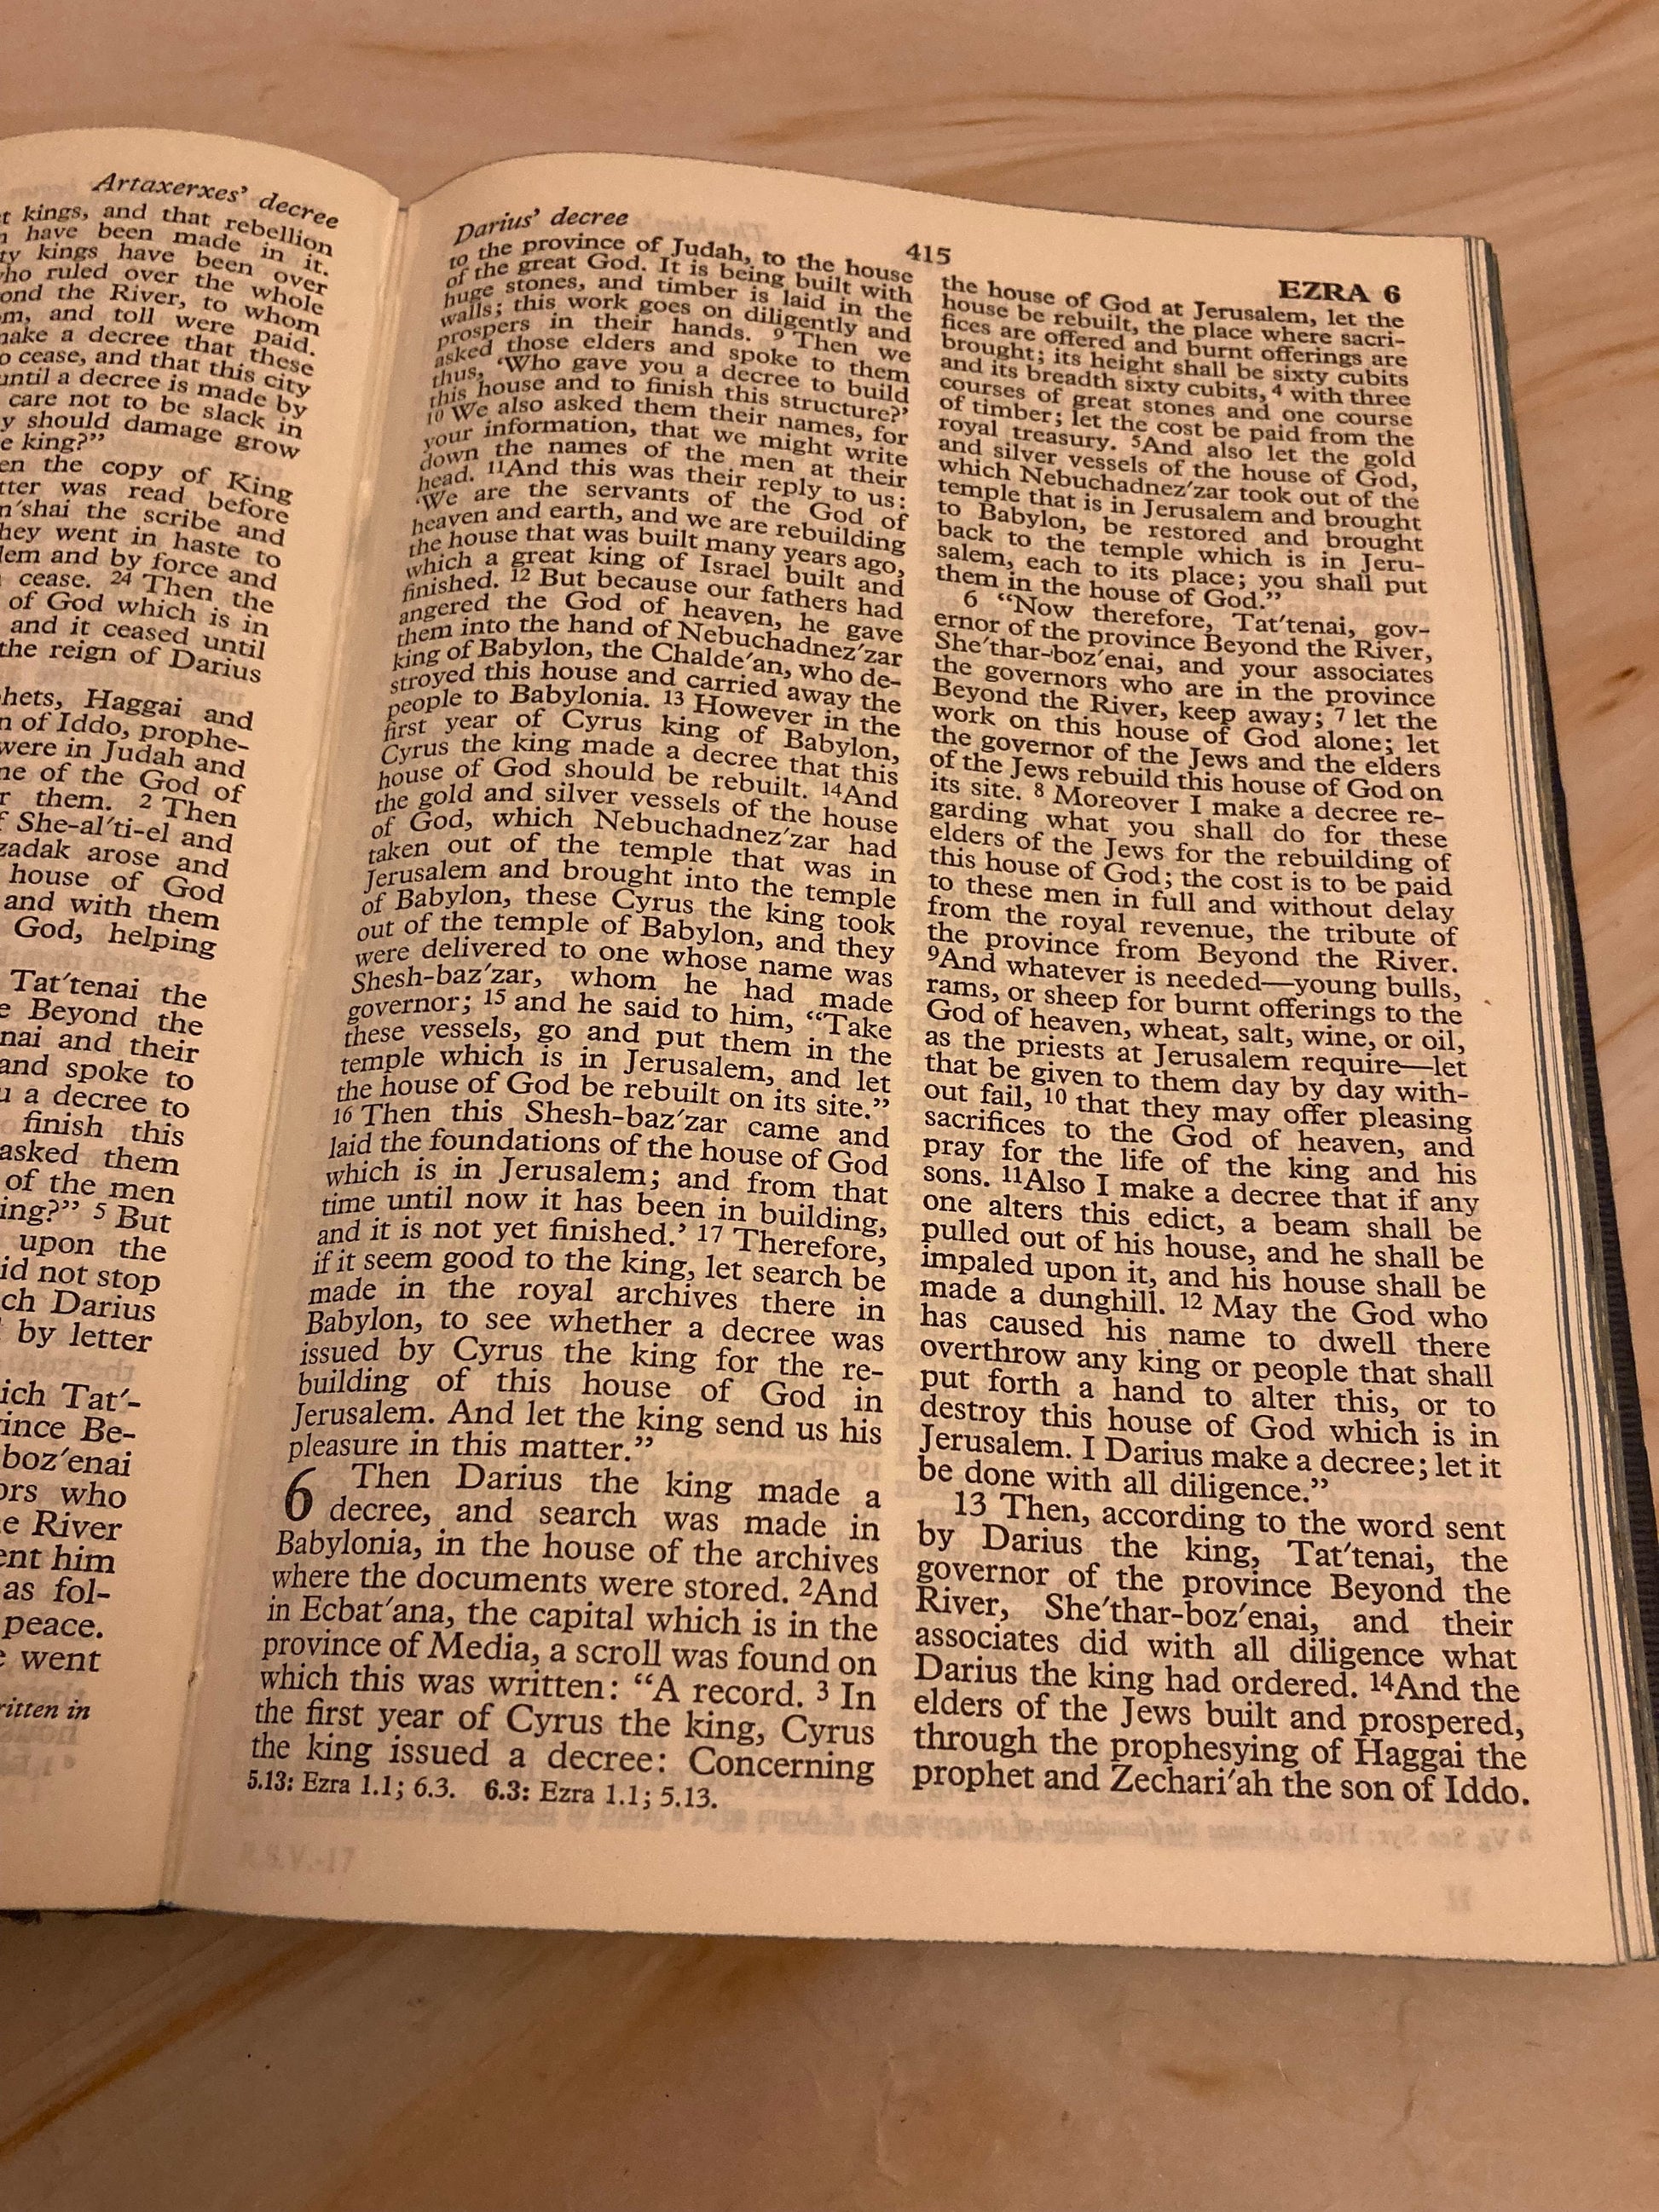 Artaxerxes' decree
kings, and that rebellion
have been made in it.
kings have been over
who ruled over the whole
the River, to whom
and toll were paid.
make a decree that these
cease, and that this city
until a decree is made by
care not to be slack in
should damage grow
king?”
the copy of King
was read before
the scribe and
they went in haste to
and by force and
cease. 24 Then the
of God which is in
and it ceased until
the reign of Darius
Haggai and
of Iddo, prophe-
were in Judah and
of the God of
them. 2 Then
She-al'ti-el and
arose and
house of God
and with them
God, helping
Tat'tenai the
Beyond the
and their
and spoke to
a decree to
finish this
asked them
of the men
5 But
upon the
did not stop
Darius
by letter
Tat'-
Be-
boz'enai
who
River
him
as fol-
peace.
went
written in
Darius' decree
415
EZRA 6
to the province of Judah, to the house
of the great God. It is being built with
huge stones, and timber is laid in the
walls; this work goes on diligently and
prospers in their hands. 9 Then we
asked those elders and spoke to them
thus, ‘Who gave you a decree to build
this house and to finish this structure?’
10 We also asked them their names, for
your information, that we might write
down the names of the men at their
head. 11And this was their reply to us:
‘We are the servants of the God of
heaven and earth, and we are rebuilding
the house that was built many years ago,
which a great king of Israel built and
finished. 12 But because our fathers had
angered the God of heaven, he gave
them into the hand of Nebuchadnez'zar
king of Babylon, the Chalde'an, who de-
stroyed this house and carried away the
people to Babylonia. 13 However in the
first year of Cyrus king of Babylon,
Cyrus the king made a decree that this
house of God should be rebuilt. 14And
the gold and silver vessels of the house
of God, which Nebuchadnez'zar had
taken out of the temple that was in
Jerusalem and brought into the temple
of Babylon, these Cyrus the king took
out of the temple of Babylon, and they
were delivered to one whose name was
Shesh-baz'zar, whom he had made
governor; 15 and he said to him, “Take
these vessels, go and put them in the
temple which is in Jerusalem, and let
the house of God be rebuilt on its site.”
16 Then this Shesh-baz'zar came and
laid the foundations of the house of God
which is in Jerusalem; and from that
time until now it has been in building,
and it is not yet finished.’ 17 Therefore,
if it seem good to the king, let search be
made in the royal archives there in
Babylon, to see whether a decree was
issued by Cyrus the king for the re-
building of this house of God in
Jerusalem. And let the king send us his
pleasure in this matter.”
6 Then Darius the king made a
decree, and search was made in
Babylonia, in the house of the archives
where the documents were stored. 2And
in Ecbat'ana, the capital which is in the
province of Media, a scroll was found on
which this was written: “A record. 3 In
the first year of Cyrus the king, Cyrus
the king issued a decree: Concerning
5.13: Ezra 1.1; 6.3. 6.3: Ezra 1.1; 5.13.
R.S.V.-17
the house of God at Jerusalem, let the
house be rebuilt, the place where sacri-
fices are offered and burnt offerings are
brought; its height shall be sixty cubits
and its breadth sixty cubits, 4 with three
courses of great stones and one course
of timber; let the cost be paid from the
royal treasury. 5And also let the gold
and silver vessels of the house of God,
which Nebuchadnez'zar took out of the
temple that is in Jerusalem and brought
to Babylon, be restored and brought
back to the temple which is in Jeru-
salem, each to its place; you shall put
them in the house of God.”
6 “Now therefore, Tat'tenai, gov-
ernor of the province Beyond the River,
She'thar-boz'enai, and your associates
the governors who are in the province
Beyond the River, keep away; 7 let the
work on this house of God alone; let
the governor of the Jews and the elders
of the Jews rebuild this house of God on
its site. 8 Moreover I make a decree re-
garding what you shall do for these
elders of the Jews for the rebuilding of
this house of God; the cost is to be paid
to these men in full and without delay
from the royal revenue, the tribute of
the province from Beyond the River.
9And whatever is needed—young bulls,
rams, or sheep for burnt offerings to the
God of heaven, wheat, salt, wine, or oil,
as the priests at Jerusalem require—let
that be given to them day by day with-
out fail, 10 that they may offer pleasing
sacrifices to the God of heaven, and
pray for the life of the king and his
sons. 11Also I make a decree that if any
one alters this edict, a beam shall be
pulled out of his house, and he shall be
impaled upon it, and his house shall be
made a dunghill. 12 May the God who
has caused his name to dwell there
overthrow any king or people that shall
put forth a hand to alter this, or to
destroy this house of God which is in
Jerusalem. I Darius make a decree; let it
be done with all diligence.”
13 Then, according to the word sent
by Darius the king, Tat'tenai, the
governor of the province Beyond the
River, She'thar-boz'enai, and their
associates did with all diligence what
Darius the king had ordered. 14And the
elders of the Jews built and prospered,
through the prophesying of Haggai the
prophet and Zechari'ah the son of Iddo.